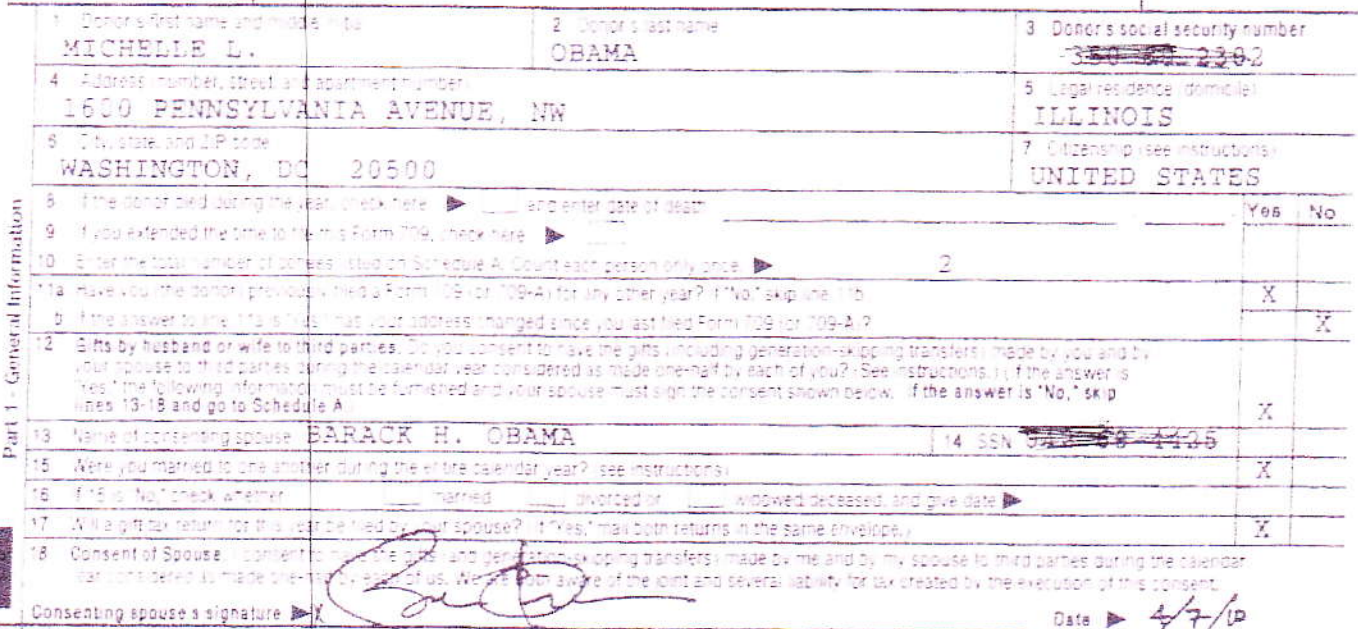 1 Donor's first name and middle initial
2 Donor's last name
3 Donor's social security number
MICHELLE L.
OBAMA
4 Address (number, street, and apartment number)
5 Legal residence (domicile)
1600 PENNSYLVANIA AVENUE, NW
ILLINOIS
6 City, state, and ZIP code
7 Citizenship (see instructions)
WASHINGTON, DC 20500
UNITED STATES
Part 1 - General Information
8 If the donor died during the year, check here ▶ and enter date of death
Yes No
9 If you extended the time to file this Form 709, check here ▶
10 Enter the total number of donees listed on Schedule A. Count each person only once. ▶ 2
11a Have you (the donor) previously filed a Form 709 (or 709-A) for any other year? If "No," skip line 11b X
b If the answer to line 11a is "Yes," has your address changed since you last filed Form 709 (or 709-A)? X
12 Gifts by husband or wife to third parties. Do you consent to have the gifts (including generation-skipping transfers) made by you and by
your spouse to third parties during the calendar year considered as made one-half by each of you? (See instructions.) (If the answer is
"Yes," the following information must be furnished and your spouse must sign the consent shown below. If the answer is "No," skip
lines 13-18 and go to Schedule A.) X
13 Name of consenting spouse BARACK H. OBAMA
14 SSN
15 Were you married to one another during the entire calendar year? (see instructions) X
16 If 15 is "No," check whether married divorced or widowed/deceased, and give date ▶
17 Will a gift tax return for this year be filed by your spouse? (If "Yes," mail both returns in the same envelope.) X
18 Consent of Spouse. I consent to have the gifts (and generation-skipping transfers) made by me and by my spouse to third parties during the calendar
year considered as made one-half by each of us. We are both aware of the joint and several liability for tax created by the execution of this consent.
Consenting spouse's signature ▶ X
Date ▶ 4/7/10